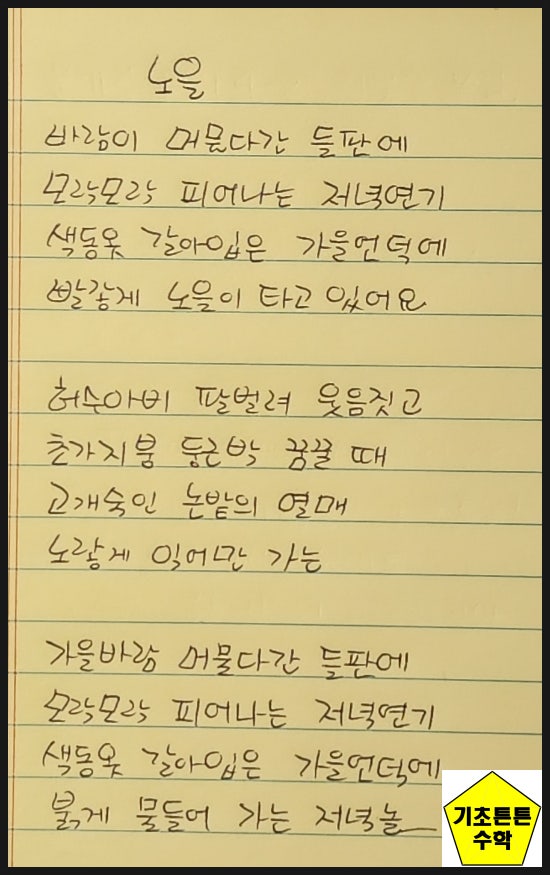 노을
바람이 머물다간 들판에
모락모락 피어나는 저녁연기
색동옷 갈아입은 가을언덕에
빨갛게 노을이 타고 있어요
허수아비 팔벌려 웃음짓고
초가지붕 둥근박 꿈꿀 때
고개숙인 논밭의 열매
노랗게 익어만 가는
가을바람 머물다간 들판에
모락모락 피어나는 저녁연기
색동옷 갈아입은 가을언덕에
붉게 물들어 가는 저녁놀
기초튼튼
수학